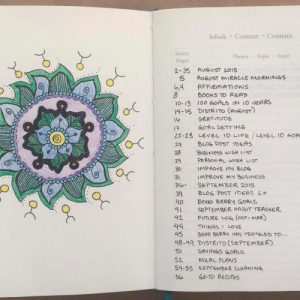 Inhalt • Content • Contenu
Seiten Thema • Topic • Sujet
Pages
2-35 AUGUST 2015
5 AUGUST MIRACLE MORNINGS
6,9 AFFIRMATIONS
8 BOOKS TO READ
10-13 100 GOALS IN 10 YEARS
14-45 DISTRITO (AUGUST)
16 GRATITUDE
17 GOAL SETTING
22-23 LEVEL 10 LIFE / LEVEL 10 GOALS
27 BLOG POST IDEAS
28 BUSINESS WISH LIST
29 PERSONAL WISH LIST
30 IMPROVE MY BLOG
31 IMPROVE MY BUSINESS
36- SEPTEMBER 2015
39 BLOG POST IDEAS 2.0
40 BOHO BERRY GOALS
41 SEPTEMBER HABIT TRACKER
42 FUTURE LOG (OCT-MAR)
44 THINGS I LOVE
45 BOHO BERRY HAS TRAVELED TO...
48-49 DISTRITO (SEPTEMBER)
51 SAVINGS GOALS
52 MEAL PLANS
54-55 SEPTEMBER CLEANING
56 GO-TO RECIPES